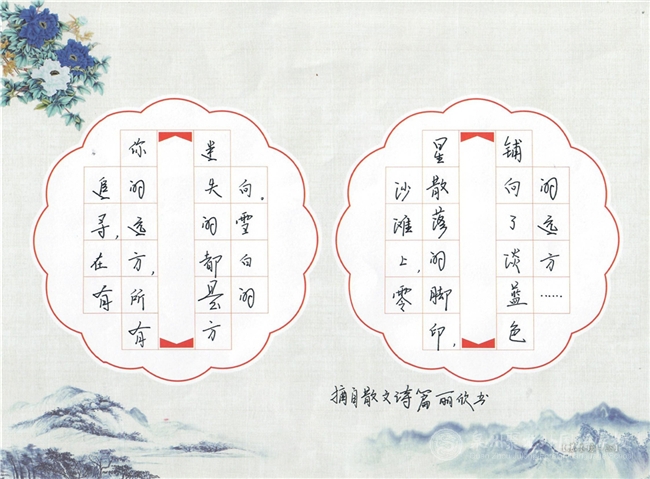 追寻,在有
你的远方,所有
迷失的都是方
向。雪白的
沙滩上,零
星散落的脚印,
铺向了淡蓝色
的远方……
摘自散文诗篇丽欣书